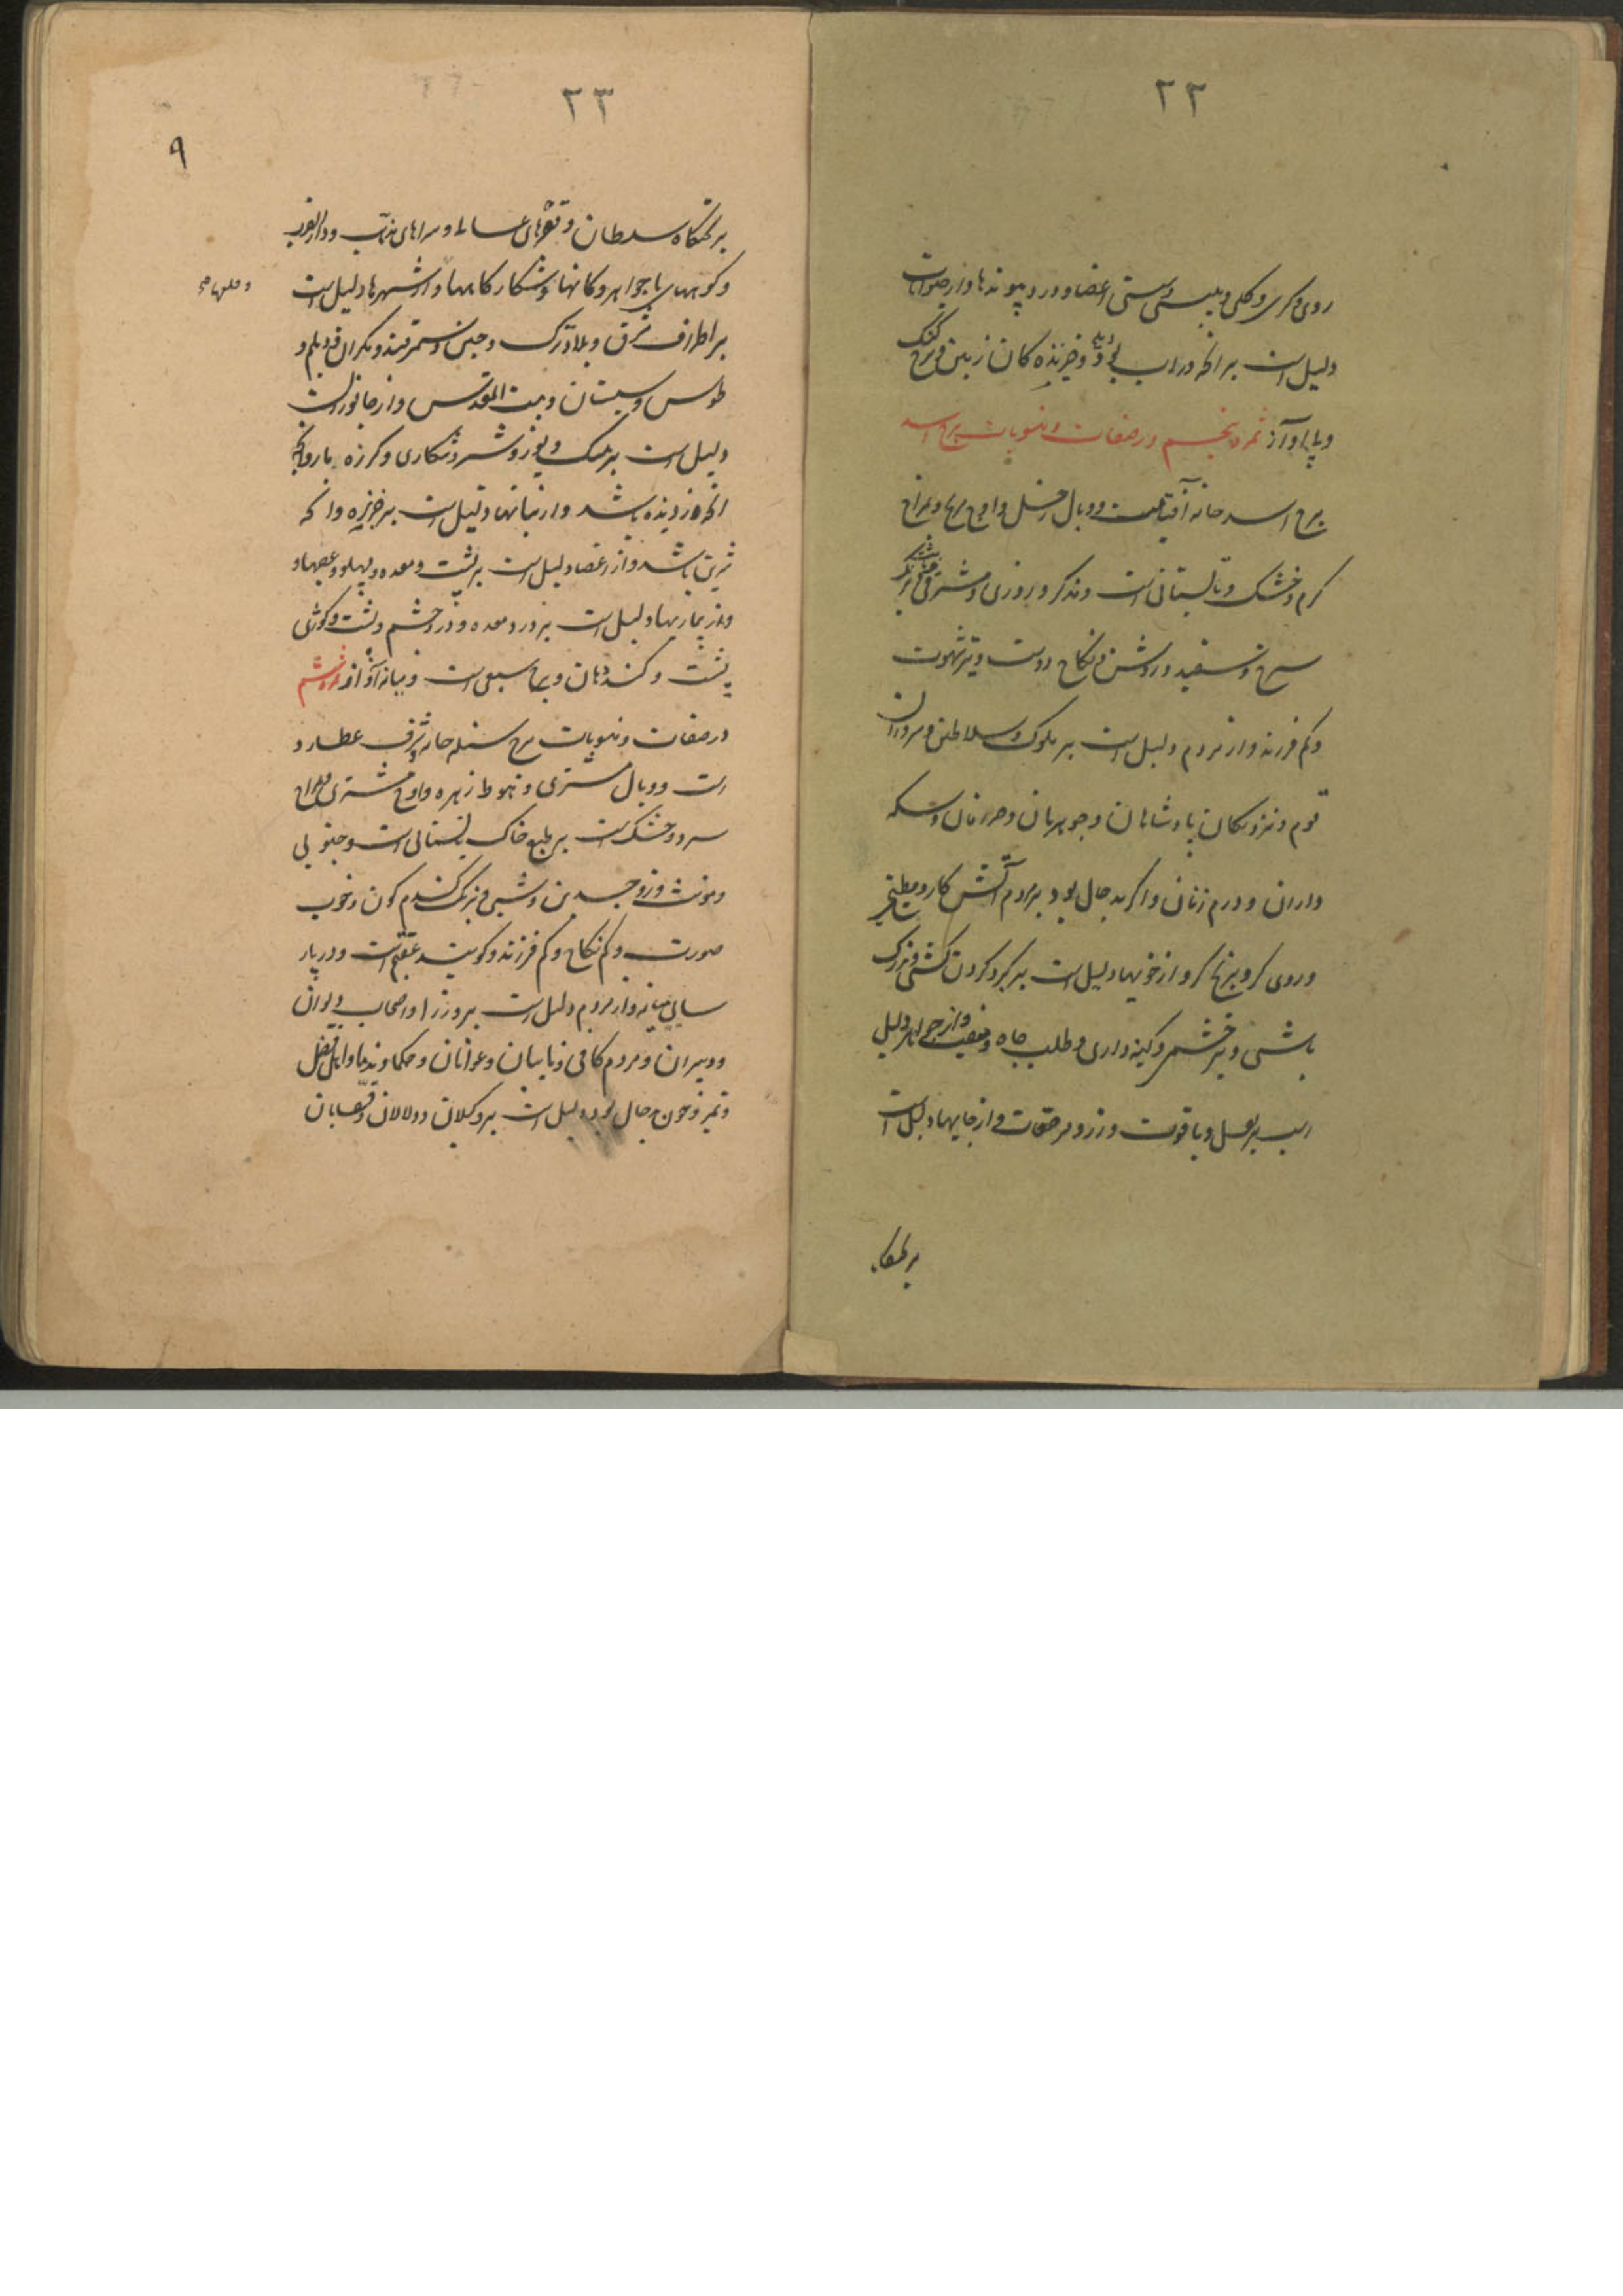 ۲۲
روی و کری و کلی و پیسی و سستی اعضا و درد پیوندها و از حیوانات
دلیل است بر آنچه در آب بود و خزنده کان زمین و مرغ
و پا او آز ثمره پنجم در صفات و منسوبات برج اسد
برج اسد خانه آفتابست و وبال زحل و اوج و مزاج
گرم و خشک و تابستانی است و مذکر و روزی و مشرقی
سرخ و سفید و روشن و نکاح دوست و تیز شهوت
و کم فرزند و از مردم دلیل است بر ملوک و سلاطین و سرداران
قوم و نزدیکان پادشاهان و جوهریان و صرافان و سکه
داران و درم زنان و اگر بد حال بود بر مردم آتش کار و مطبخی
و روی گر و برنج گر و از خویها دلیل است بر گرد کردن کشی و بزرگ
باشی و تیز خشمی و کینه داری و طلب جاه و از جواهر دلیل
است بر لعل و یاقوت و زر و مرصعات و از جایها دلیل است
بر تختگاه
۲۳
۹
بر تختگاه سلطان و قصرهای عالی و سراهای و دار الضرب
و کوههای با جواهر و کانها و شکار گاهها و از شهرها دلیل است
بر اطراف شرق و بلاد ترک و چین و سمرقند و مکران و دیلم و
طوس و سیستان و بیت المقدس و از جانوران
دلیل است بر پلنگ و یوز و شیر و شکاری و گرزه مار و آنچه
آنچه درنده باشد و از نباتها دلیل است بر خربزه و آنکه
شیرین باشد و از اعضا دلیل است بر پشت و معده و پهلو و عصبها و
و از بیماریها دلیل است بر درد معده و درد چشم و پشت و کوژی
پشت و گنده دهان و سبعی است و میانه آواز ثمره ششم
در صفات و منسوبات برج سنبله خانه و شرف عطارد
است و وبال مشتری و هبوط زهره و اوج مشتری مزاج
سرد و خشک است بر طبع خاک تابستانی است و جنوبی
و مونث و ذو جسدین و شبی و برنگ گندم گون و خوب
صورت و کم نکاح و کم فرزند و گویند عقیم است و در بسیار
سالی میانه و از مردم دلیل است بر وزرا و اصحاب دیوان
و دبیران و مردم کافی و نایبان و عوانان و حکما و ندما و اهل فضل
و تمیز و چون بد حال بود دلیل است بر وکیلان و دلالان و قصابان